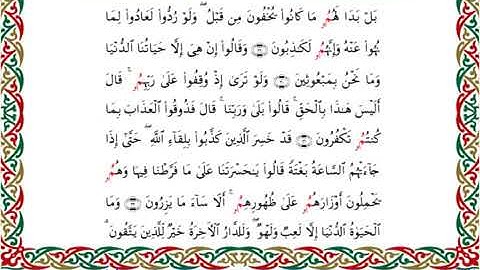 بَلْ بَدَا لَهُمُۥ مَا كَانُوا۟ يُخْفُونَ مِن قَبْلُ ۖ وَلَوْ رُدُّوا۟ لَعَادُوا۟ لِمَا
نُهُوا۟ عَنْهُ وَإِنَّهُمُۥ لَكَٰذِبُونَ وَقَالُوٓا۟ إِنْ هِىَ إِلَّا حَيَاتُنَا الدُّنْيَا
وَمَا نَحْنُ بِمَبْعُوثِينَ وَلَوْ تَرَىٰٓ إِذْ وُقِفُوا۟ عَلَىٰ رَبِّهِمُۥ ۚ قَالَ
أَلَيْسَ هَٰذَا بِالْحَقِّ ۚ قَالُوا۟ بَلَىٰ وَرَبِّنَا ۚ قَالَ فَذُوقُوا۟ الْعَذَابَ بِمَا
كُنتُمُۥ تَكْفُرُونَ قَدْ خَسِرَ الَّذِينَ كَذَّبُوا۟ بِلِقَآءِ اللَّهِ ۖ حَتَّىٰٓ إِذَا
جَآءَتْهُمُ السَّاعَةُ بَغْتَةً قَالُوا۟ يَٰحَسْرَتَنَا عَلَىٰ مَا فَرَّطْنَا فِيهَا وَهُمُۥ
يَحْمِلُونَ أَوْزَارَهُمُۥ عَلَىٰ ظُهُورِهِمُۥ ۚ أَلَا سَآءَ مَا يَزِرُونَ وَمَا
الْحَيَوٰةُ الدُّنْيَا إِلَّا لَعِبٌ وَلَهْوٌ ۖ وَلَلدَّارُ الْأَخِرَةُ خَيْرٌ لِّلَّذِينَ يَتَّقُونَ ۚ